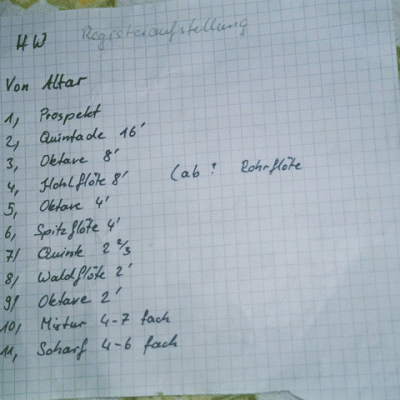 HW Registeraufstellung
Von Altar
1, Prospekt
2, Quintade 16'
3, Oktave 8'
4, Hohlflöte 8' (ab ? Rohrflöte
5, Oktave 4'
6, Spitzflöte 4'
7/ Quinte 2 2/3
8/ Waldflöte 2'
9/ Oktave 2'
10, Mixtur 4-7 fach
11, Scharf 4-6 fach